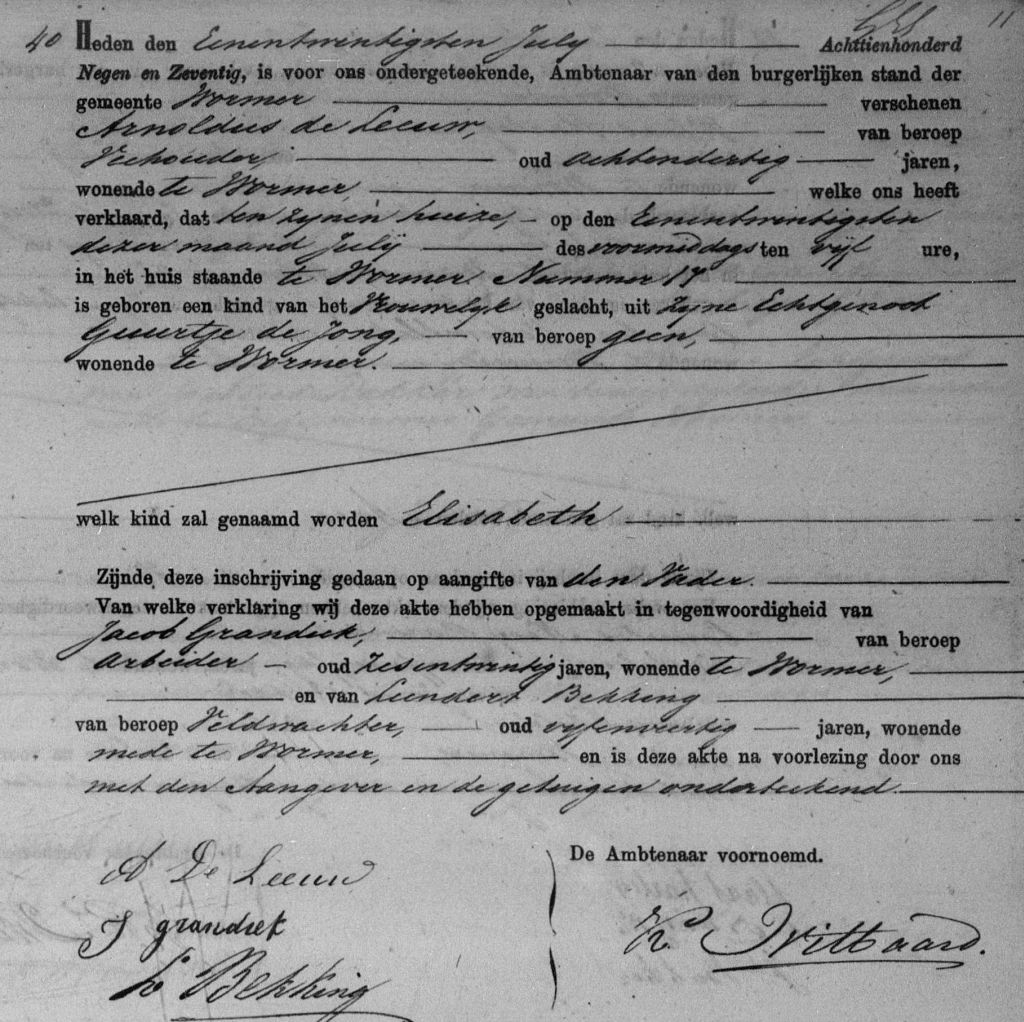 11
40 Heden den Eenentwintigsten July Achttienhonderd
Negen en Zeventig, is voor ons ondergeteekende, Ambtenaar van den burgerlijken stand der
gemeente Wormer verschenen
Arnoldus de Leeuw, van beroep
Veehouder, oud achtendertig jaren,
wonende te Wormer, welke ons heeft
verklaard, dat ten zynen huize, op den Eenentwintigsten
dezer maand July des voormiddags ten vijf ure,
in het huis staande te Wormer Nummer 17
is geboren een kind van het Vrouwelyk geslacht, uit zyne Echtgenoot
Guurtje de Jong, van beroep geen,
wonende te Wormer.
welk kind zal genaamd worden Elisabeth
Zijnde deze inschrijving gedaan op aangifte van den Vader.
Van welke verklaring wij deze akte hebben opgemaakt in tegenwoordigheid van
Jacob Grandiek, van beroep
Arbeider oud zesentwintig jaren, wonende te Wormer,
en van Leendert Bekking
van beroep Veldwachter, oud vyfenveertig jaren, wonende
mede te Wormer, en is deze akte na voorlezing door ons
met den Aangever en de getuigen onderteekend.
De Ambtenaar voornoemd.
A De Leeuw
J grandiek
L Bekking